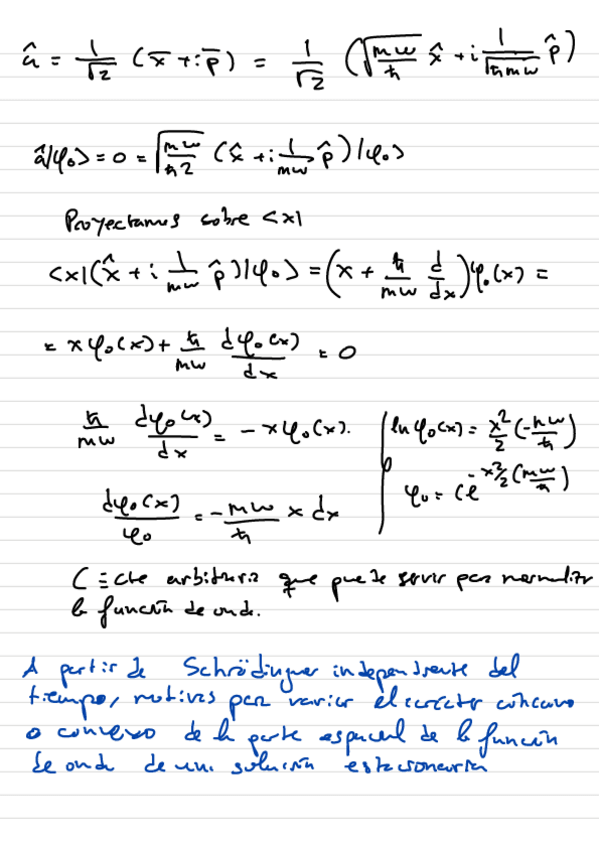 â = 1/√2 (x̄ + i p̄) = 1/√2 (√(mw/ħ) x̂ + i 1/√(ħmw) p̂)
â|φ₀> = 0 = √(mw/ħ2) (x̂ + i 1/mw p̂)|φ₀>
Proyectamos sobre <x|
<x|(x̂ + i 1/mw p̂)|φ₀> = (x + ħ/mw d/dx)φ₀(x) =
= xφ₀(x) + ħ/mw dφ₀(x)/dx = 0
ħ/mw dφ₀(x)/dx = -xφ₀(x). ln φ₀(x) = x²/2 (-mw/ħ)
dφ₀(x)/φ₀ = -mw/ħ x dx φ₀ = C e^(-x²/2 (mw/ħ))
C ≡ cte arbitraria que puede servir para normalizar
la función de onda.
A partir de Schrödinguer independiente del
tiempo, motivos para variar el carácter cóncavo
o convexo de la parte espacial de la función
de onda de una solución estacionaria